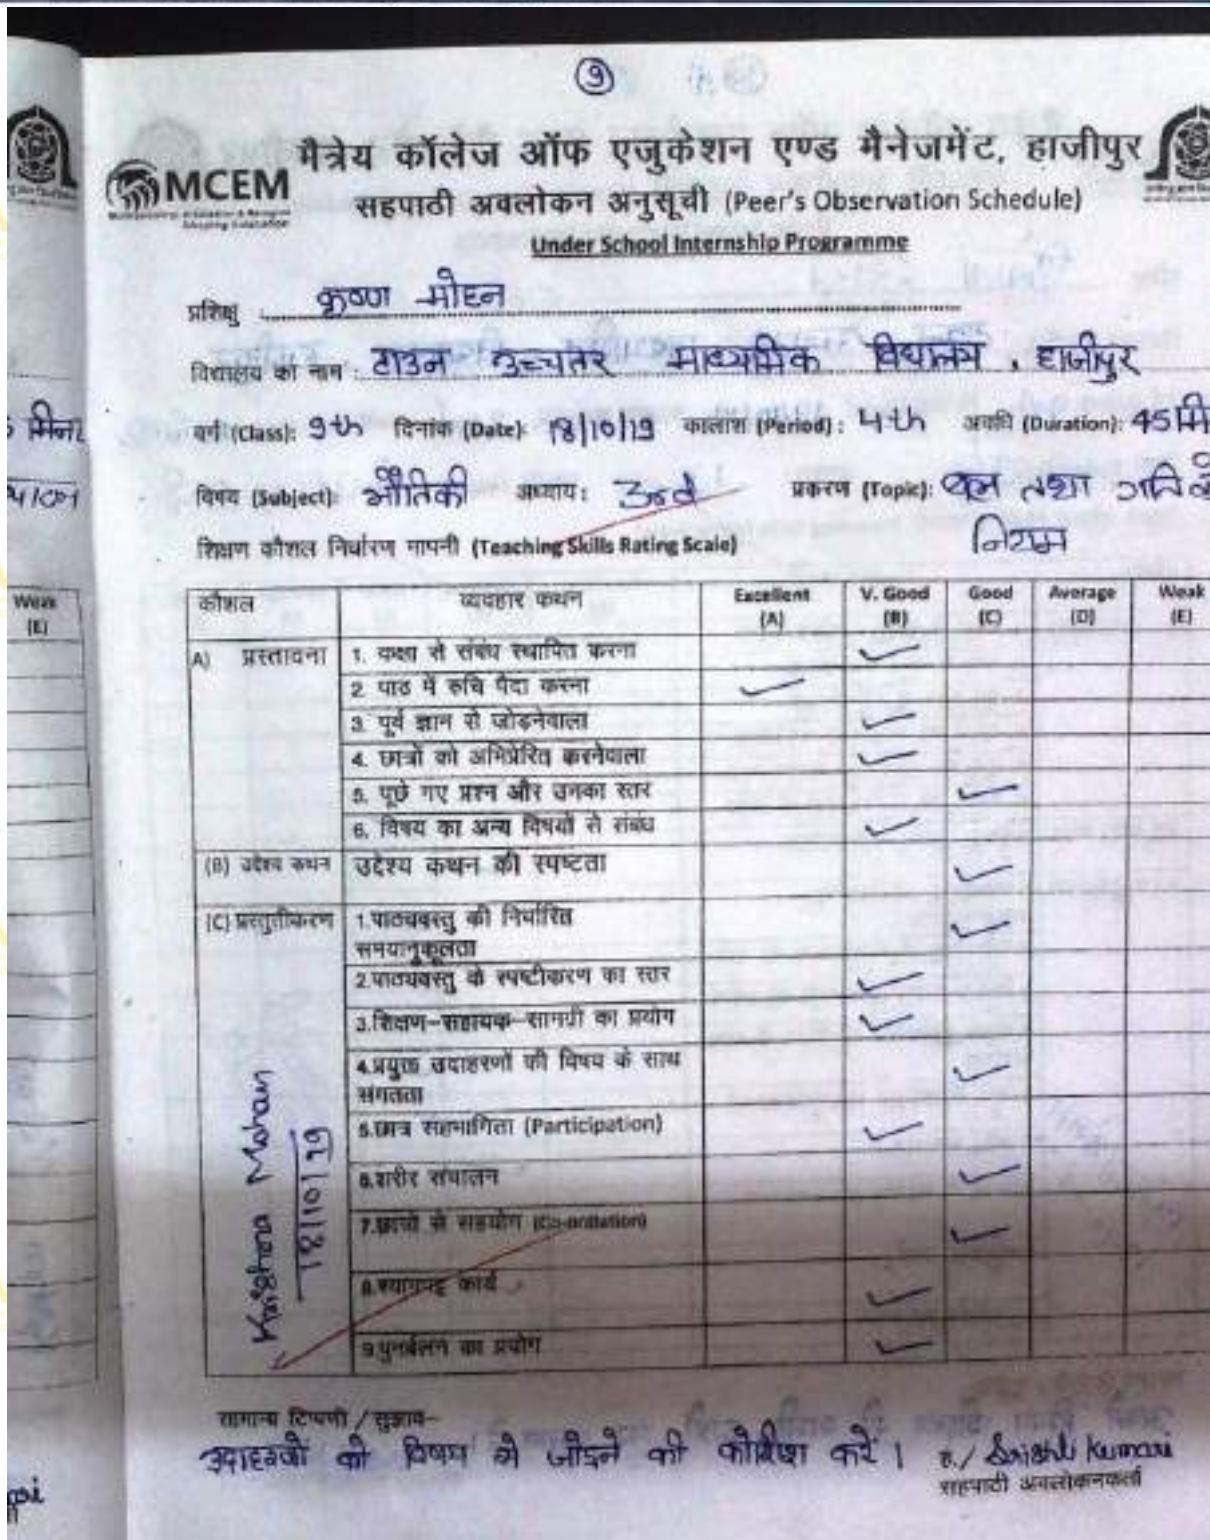 9
MCEM
मैत्रेय कॉलेज ऑफ एजुकेशन एण्ड मैनेजमेंट, हाजीपुर
सहपाठी अवलोकन अनुसूची (Peer's Observation Schedule)
Under School Internship Programme
प्रशिक्षु कृष्ण मोहन
विद्यालय का नाम : टाउन उच्चतर माध्यमिक विद्यालय, हाजीपुर
वर्ग (Class): 9th दिनांक (Date): 18/10/19 कालांश (Period): 4th अवधि (Duration): 45 मि
विषय (Subject): भौतिकी अध्याय: 3rd प्रकरण (Topic): बल तथा गति के
नियम
शिक्षण कौशल निर्धारण मापनी (Teaching Skills Rating Scale)
कौशल व्यवहार कथन Excellent (A) V. Good (B) Good (C) Average (D) Weak (E)
A) प्रस्तावना 1. कक्षा से संबंध स्थापित करना ✓
2. पाठ में रुचि पैदा करना ✓
3. पूर्व ज्ञान से जोड़नेवाला ✓
4. छात्रों को अभिप्रेरित करनेवाला ✓
5. पूछे गए प्रश्न और उनका स्तर ✓
6. विषय का अन्य विषयों से संबंध ✓
(B) उद्देश्य कथन उद्देश्य कथन की स्पष्टता ✓
(C) प्रस्तुतीकरण 1.पाठ्यवस्तु की निर्धारित
समयानुकूलता ✓
2.पाठ्यवस्तु के स्पष्टीकरण का स्तर ✓
3.शिक्षण-सहायक-सामग्री का प्रयोग ✓
4.प्रयुक्त उदाहरणों की विषय के साथ
संगतता ✓
5.छात्र सहभागिता (Participation) ✓
6.शरीर संचालन ✓
7.छात्रों से सहयोग ✓
8.श्यामपट्ट कार्य ✓
9.पुनर्बलन का प्रयोग ✓
Krishna Mohan
18/10/19
सामान्य टिप्पणी / सुझाव-
उदाहरणों को विषय से जोड़ने की कोशिश करें।
ह./ Srishti Kumari
सहपाठी अवलोकनकर्ता
Weak
(E)